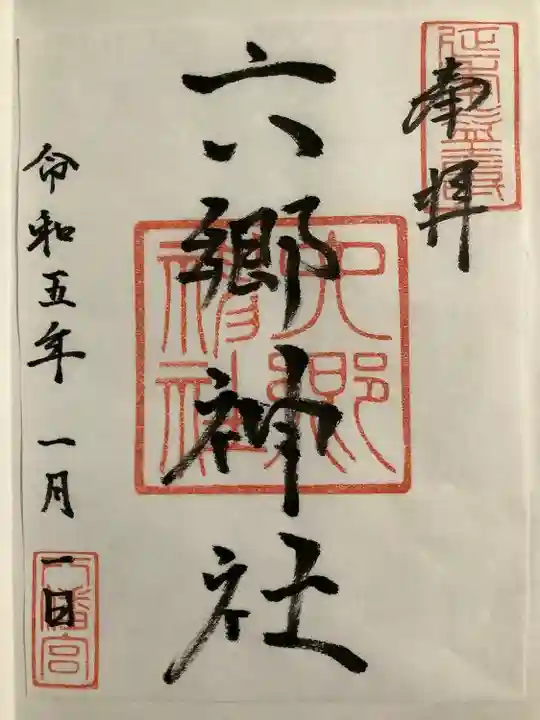 奉拝
六郷神社
六郷神社
令和五年 一月一日
八幡宮